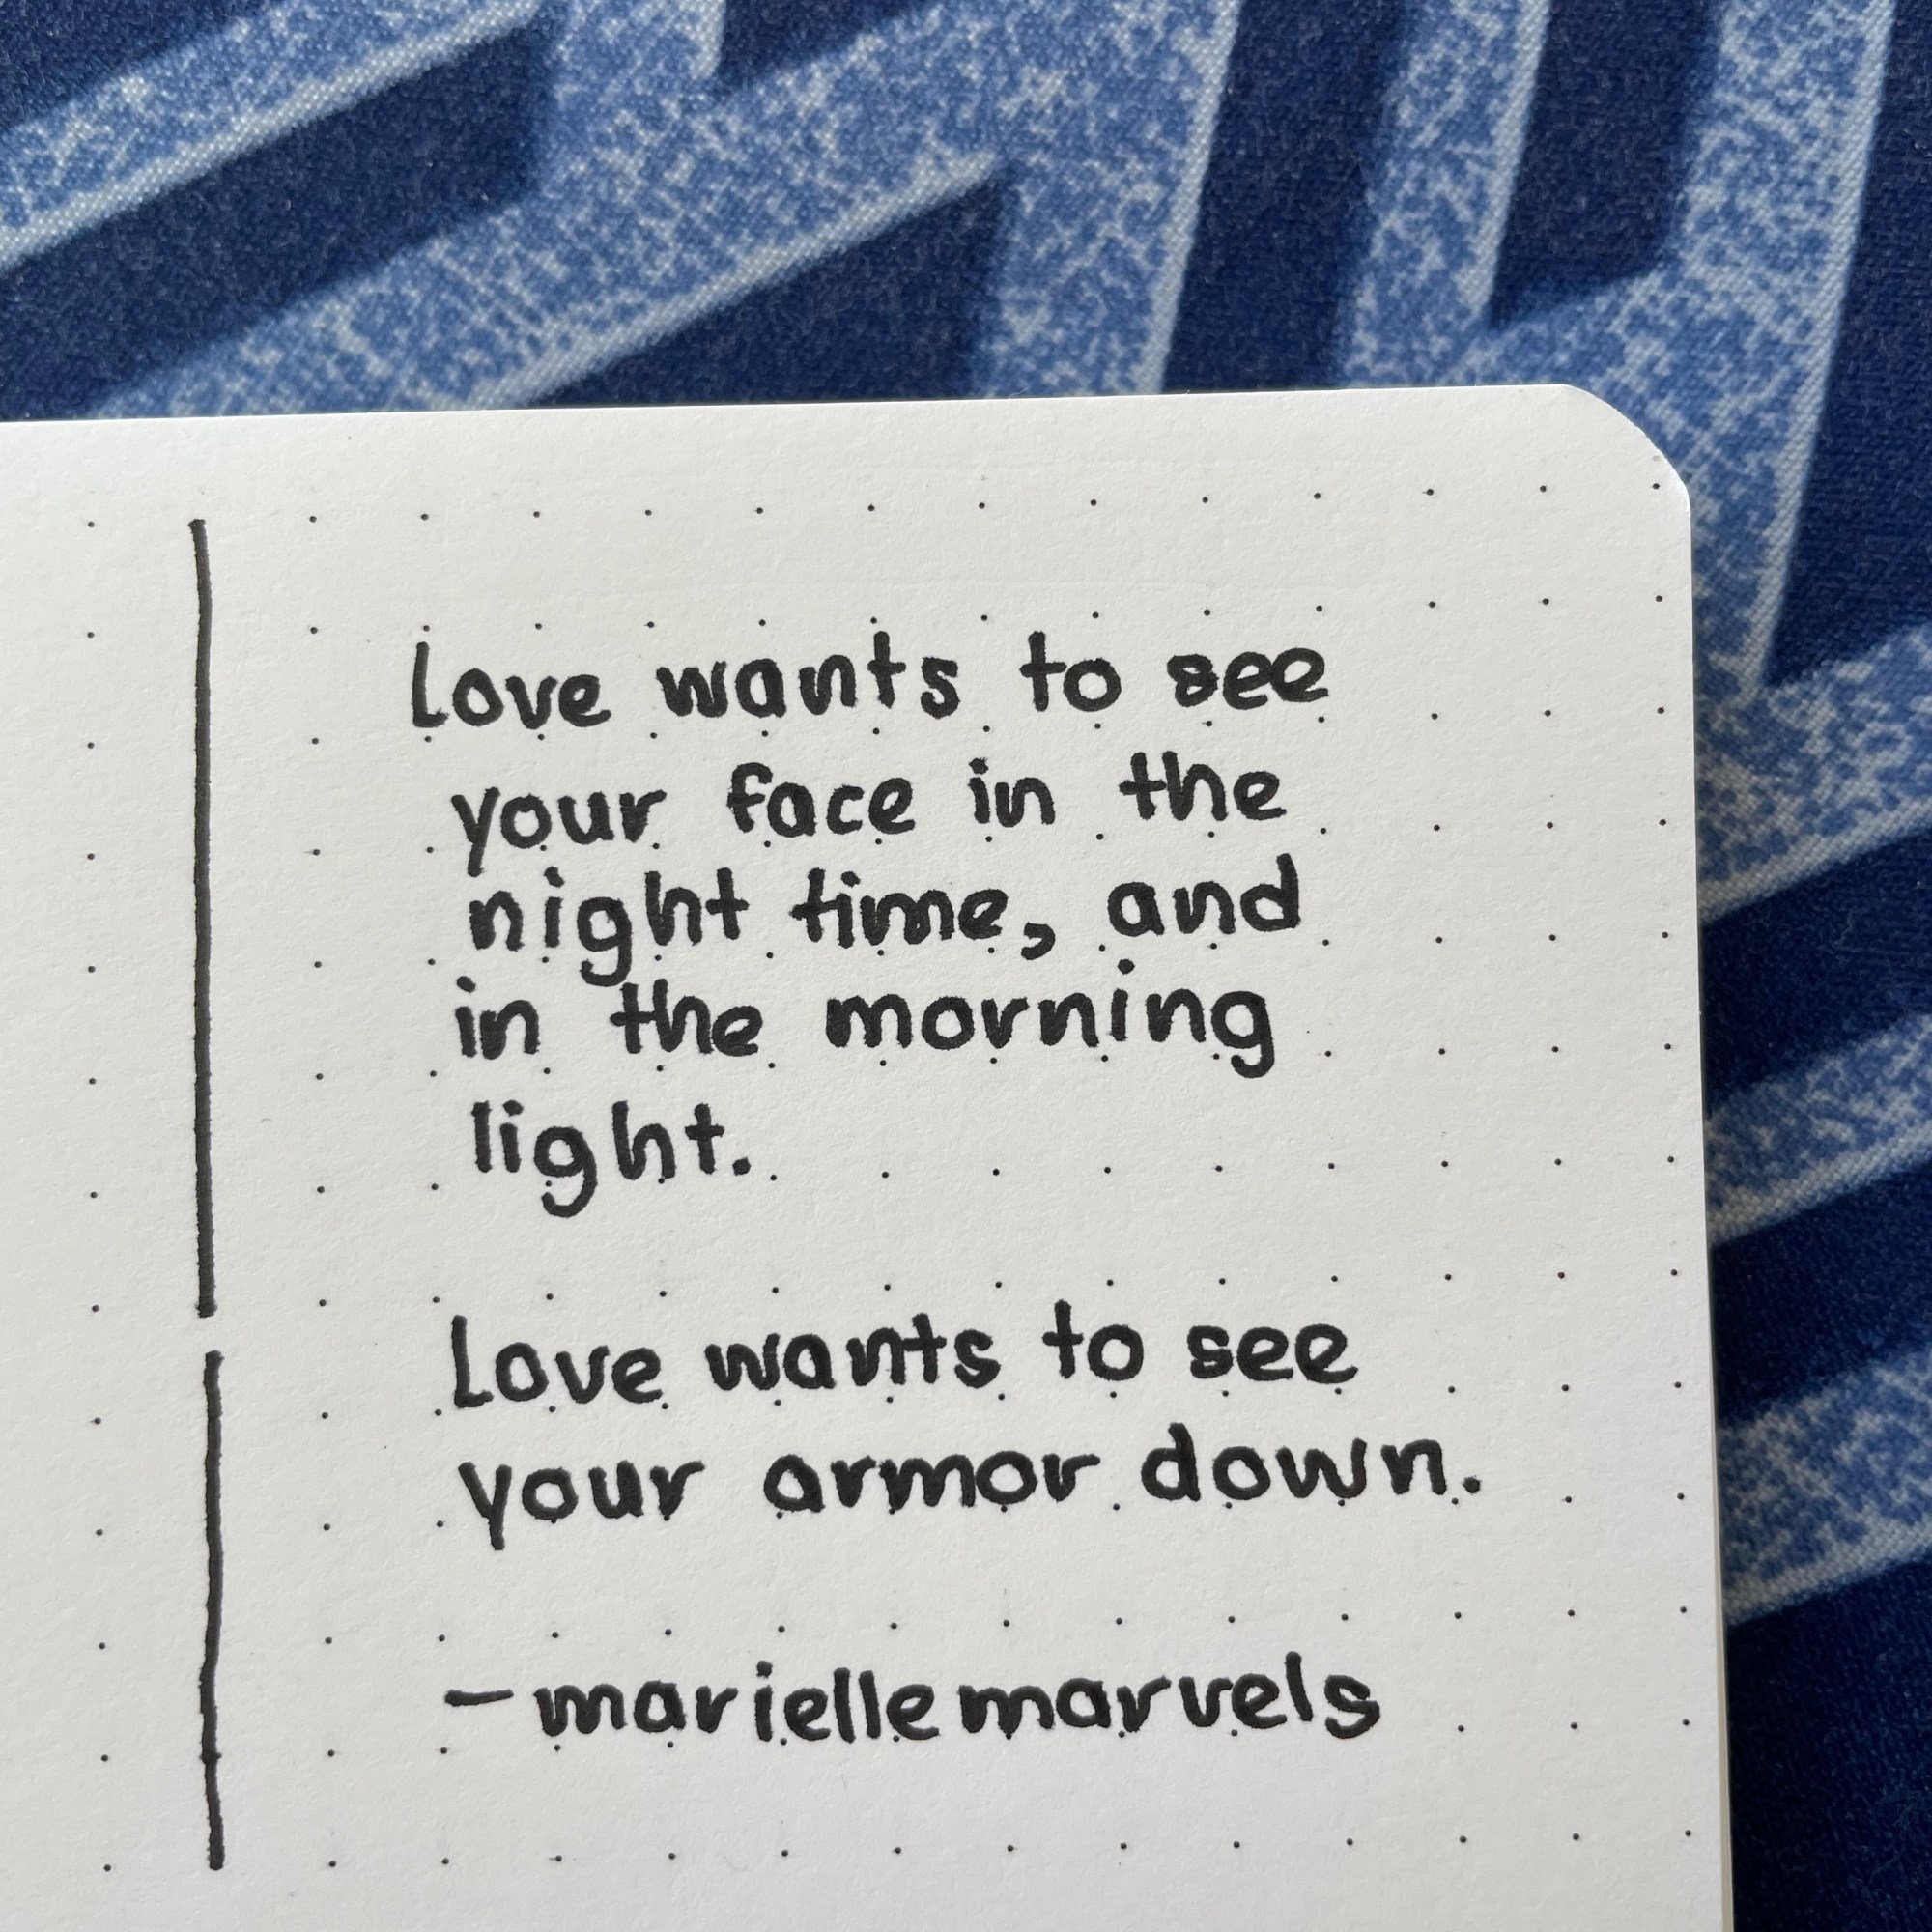 Love wants to see
your face in the
night time, and
in the morning
light.
Love wants to see
your armor down.
- mariellemarvels